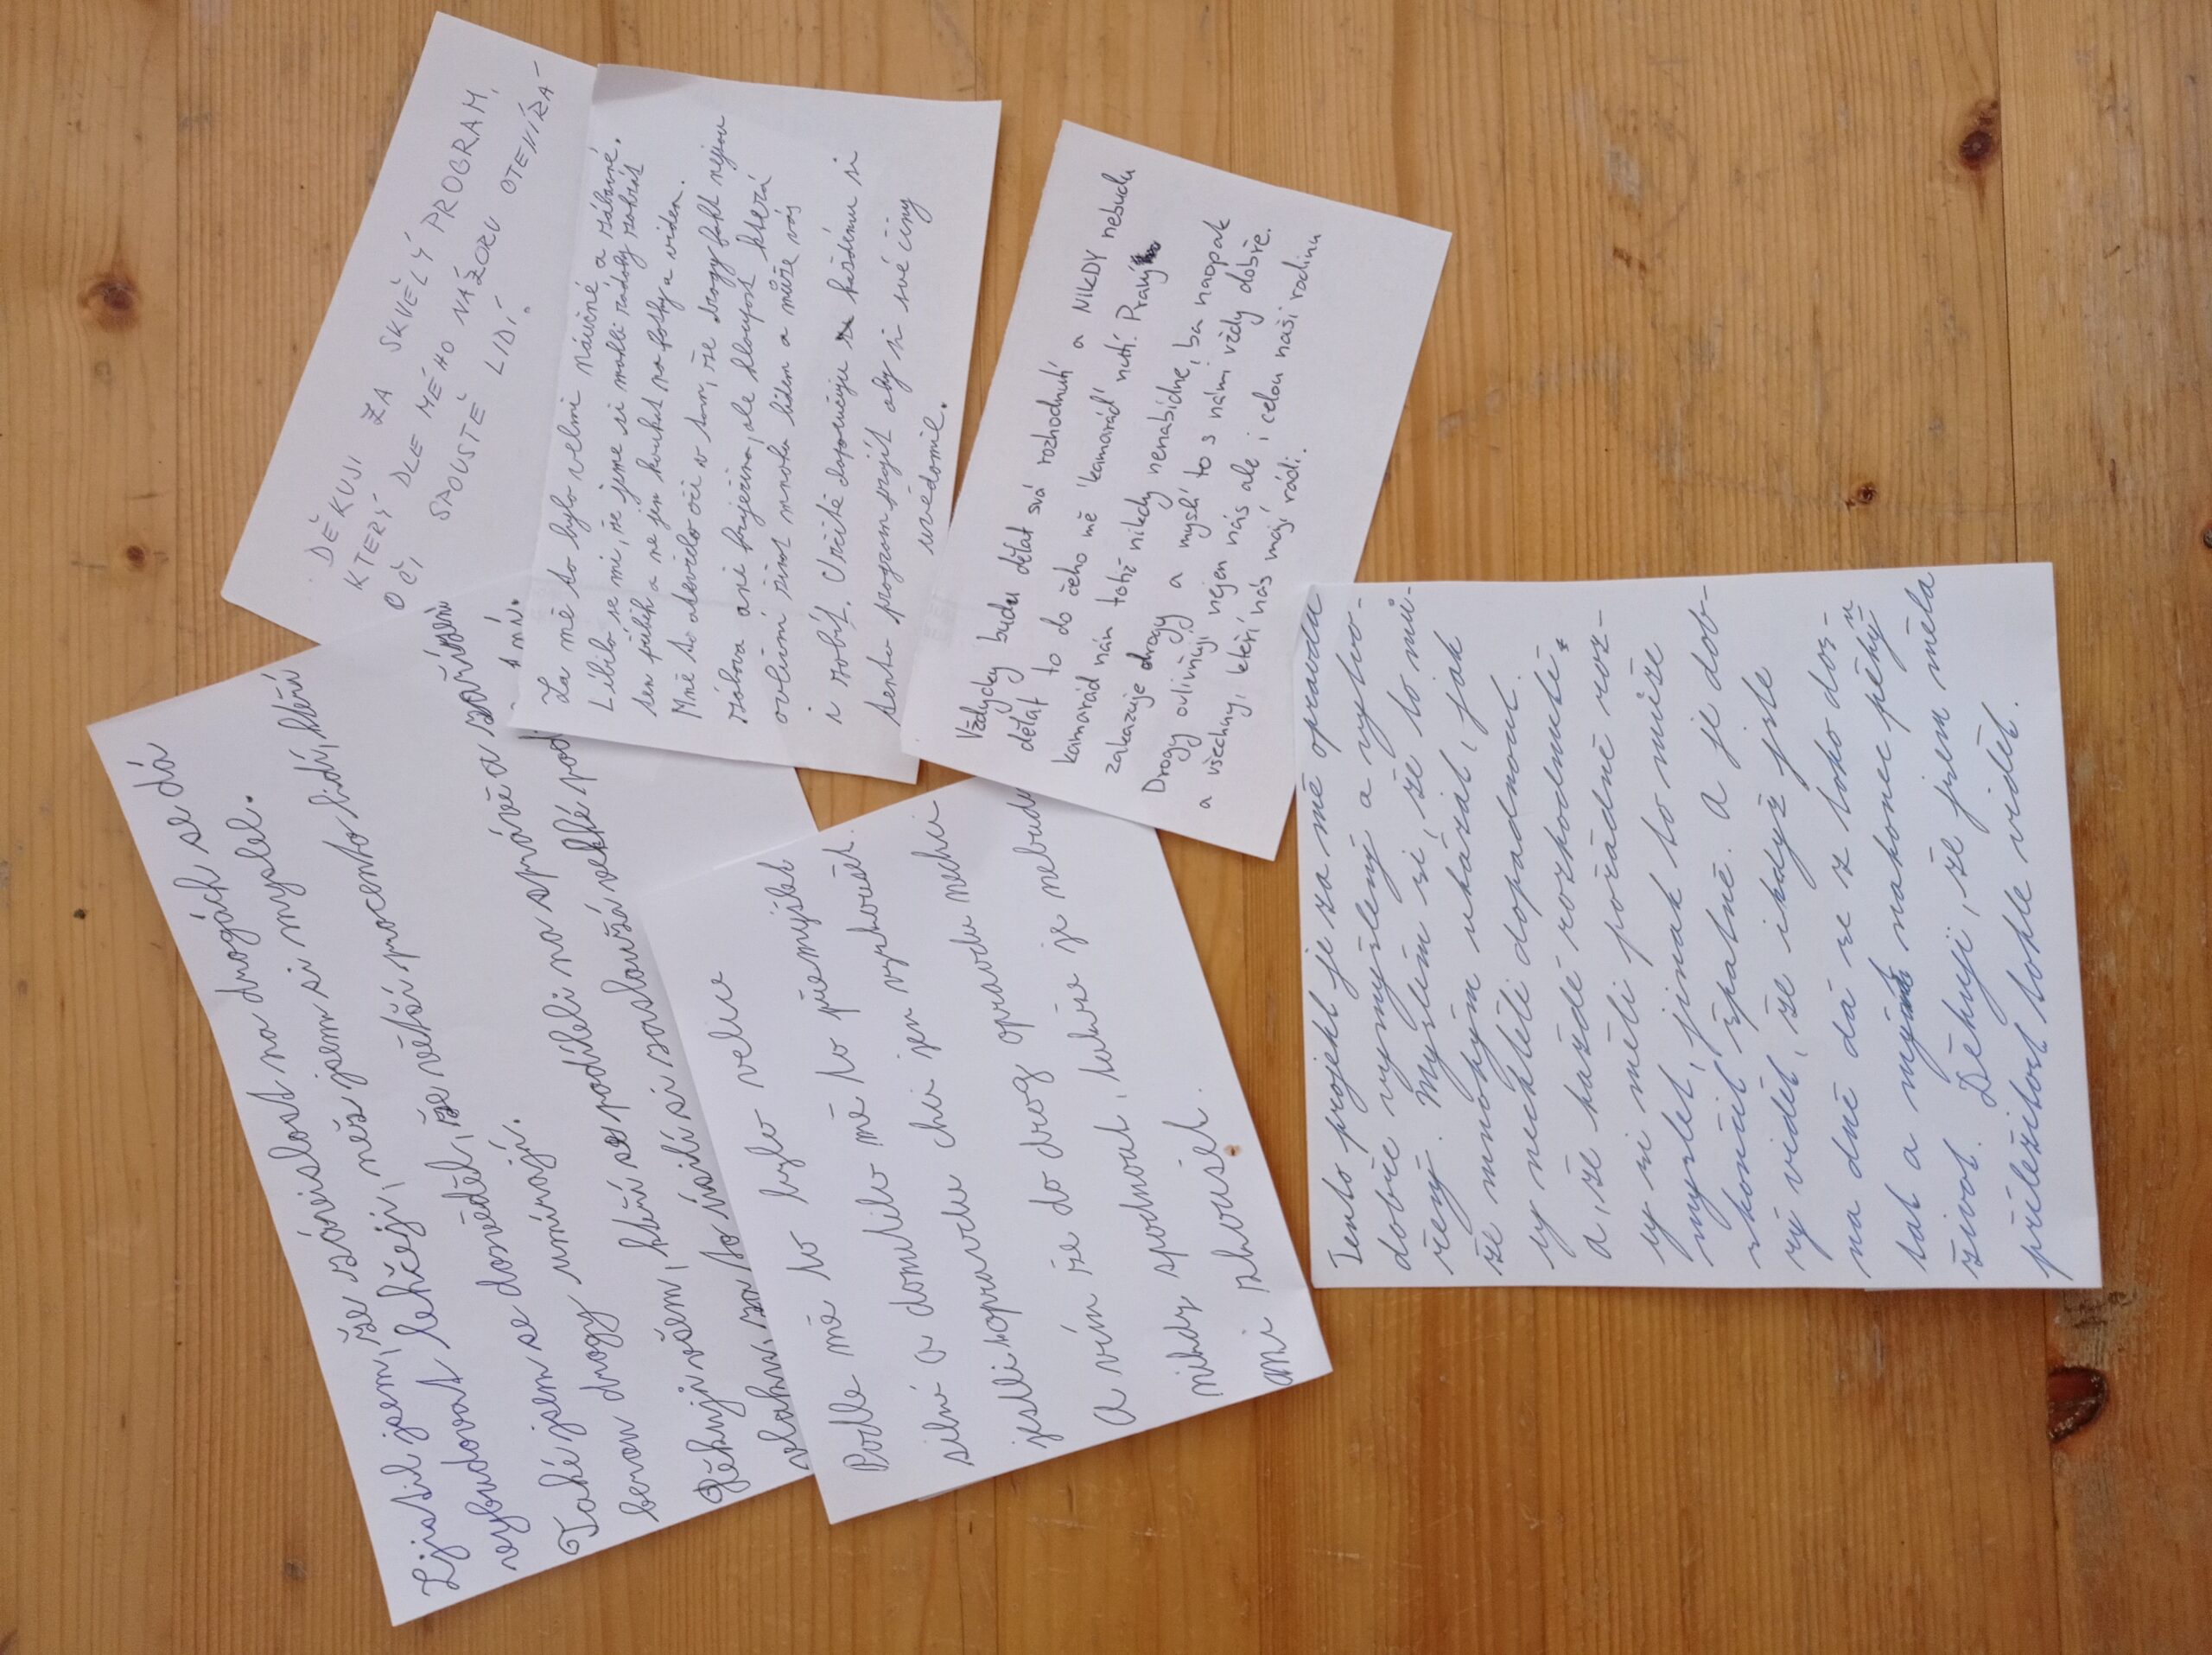 Zjistil jsem, že závislost na drogách se dá
vybudovat lehčeji, než jsem si myslel.
vybudovat jsem se dozvěděl, že větší procento lidí, kteří
berou drogy umírají.
Také jsem se podíleli na správě a zařízení
Děkuji všem, kteří si zaslouží velké
za to úsilí
DĚKUJI ZA SKVĚLÝ PROGRAM,
KTERÝ DLE MÉHO NÁZORU OTEVÍRÁ-
OČI SPOUSTĚ LIDÍ.
Za mě to bylo velmi náučné a zábavné.
Líbilo se mi, že jsme si mohli zádoby zahrát
ten příběh a ne jen koukat na fotky a videa.
Mně to otevřelo oči v tom, že drogy fakt nejsou
zábava ani frajeřina, ale hloupost která
ovlivní život mnoha lidem a může vás
i zabít. Určitě doporučuju každému si
tento program projít aby si své činy
uvědomil.
Vždycky budu dělat svá rozhodnutí a NIKDY nebudu
dělat to do čeho mě "kamarád" nutí. Pravý
kamarád nám totiž nikdy nenabídne, ba naopak
zakazuje drogy a myslí to s námi vždy dobře.
Drogy ovlivňují nejen nás ale i celou naší rodinu
a všechny, kteří nás mají rádi.
to bylo velice
Podle mě to
silné a donutilo mě to přemýšlet
jestli opravdu chci jen vyzkoušet.
A vím že do drog opravdu nechci
nikdy spadnout, takže je nebudu
ani zkoušet.
Tento projekt je za mě opravdu
dobře vymyšlený a vytvo-
řený. Myslím si, že to mů-
že mnohým ukázat, jak
by nechtěli dopadnout
a, že každé rozhodnutí
by si měli pořádně roz-
myslet, jinak to může
skončit špatně. A je dob-
rý vidět, že i když jste
na dně dá se z toho dos-
tat a mít nakonec pěkný
život. Děkuji, že jsem měla
příležitost tohle vidět.